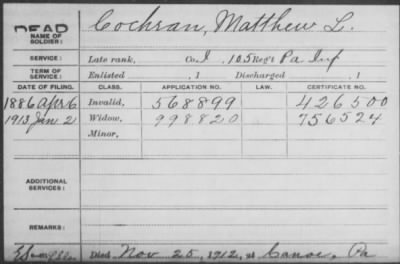 DEAD
NAME OF SOLDIER: Cochran, Matthew L.
SERVICE: Late rank, Co. I, 105 Reg't Pa Inf
TERM OF SERVICE: Enlisted , 1 Discharged , 1
DATE OF FILING. CLASS. APPLICATION NO. LAW. CERTIFICATE NO.
1886 Apr 6 Invalid, 568899 426500
1913 Jan 2 Widow, 998820 756524
Minor,
ADDITIONAL SERVICES:
REMARKS:
Died Nov. 25, 1912, at Canoe, Pa